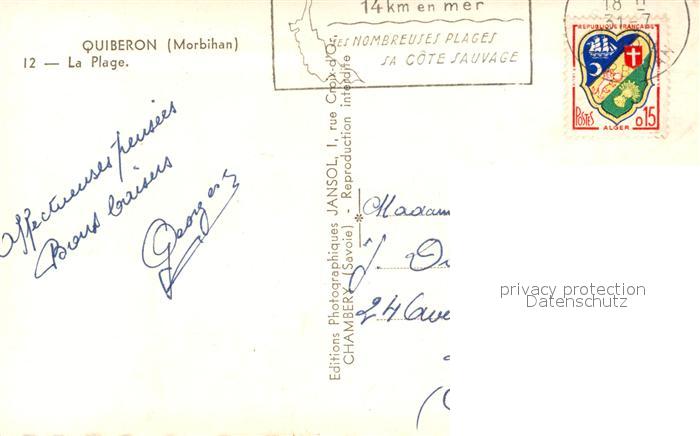 14 km en mer
SES NOMBREUSES PLAGES
SA CÔTE SAUVAGE
18 H
31-7
REPUBLIQUE FRANÇAISE
POSTES
0,15
ALGER
QUIBERON (Morbihan)
12 — La Plage.
Affectueuses pensées
Bons baisers
Georges
Editions Photographiques JANSOL, 1, rue Croix-d'Or,
CHAMBERY (Savoie) - Reproduction interdite
Madam
J.
24 Ave
(
privacy protection
Datenschutz